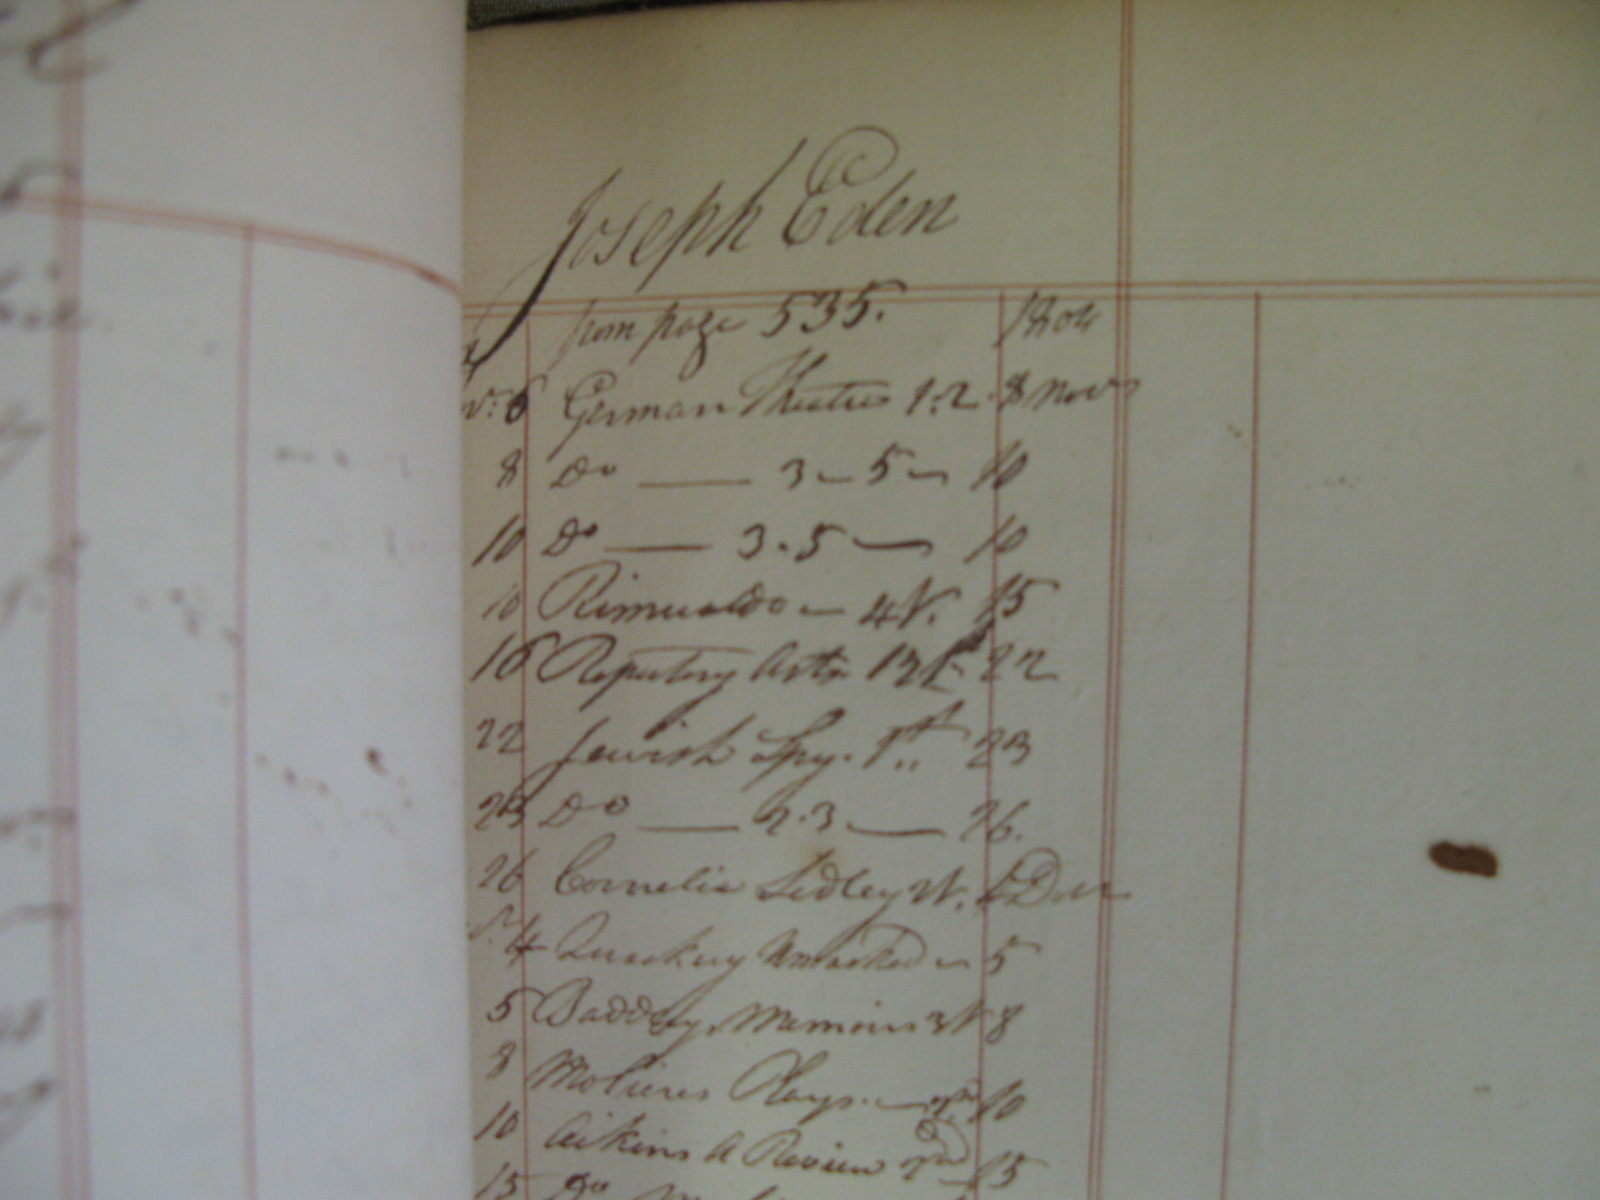 Joseph Eden
from page 535. 1804
6 German Theatre 1.2. 8 Nov
8 Do —— 3 — 5 — 10
10 Do —— 3.5 — 10
10 Rimualdo — 4 V. 15
16 Reputory Arts 22
22 Jewish Spy. 1st 23
23 Do —— 2.3 —— 26.
26 Cornelia Sedley 2 V. Decr
4 Quackery Unmasked — 5
5 Baddeleys Memoirs 3 V 8
8 Molieres Plays. — 10
10 Aikins A Review 2nd 15
15 Do